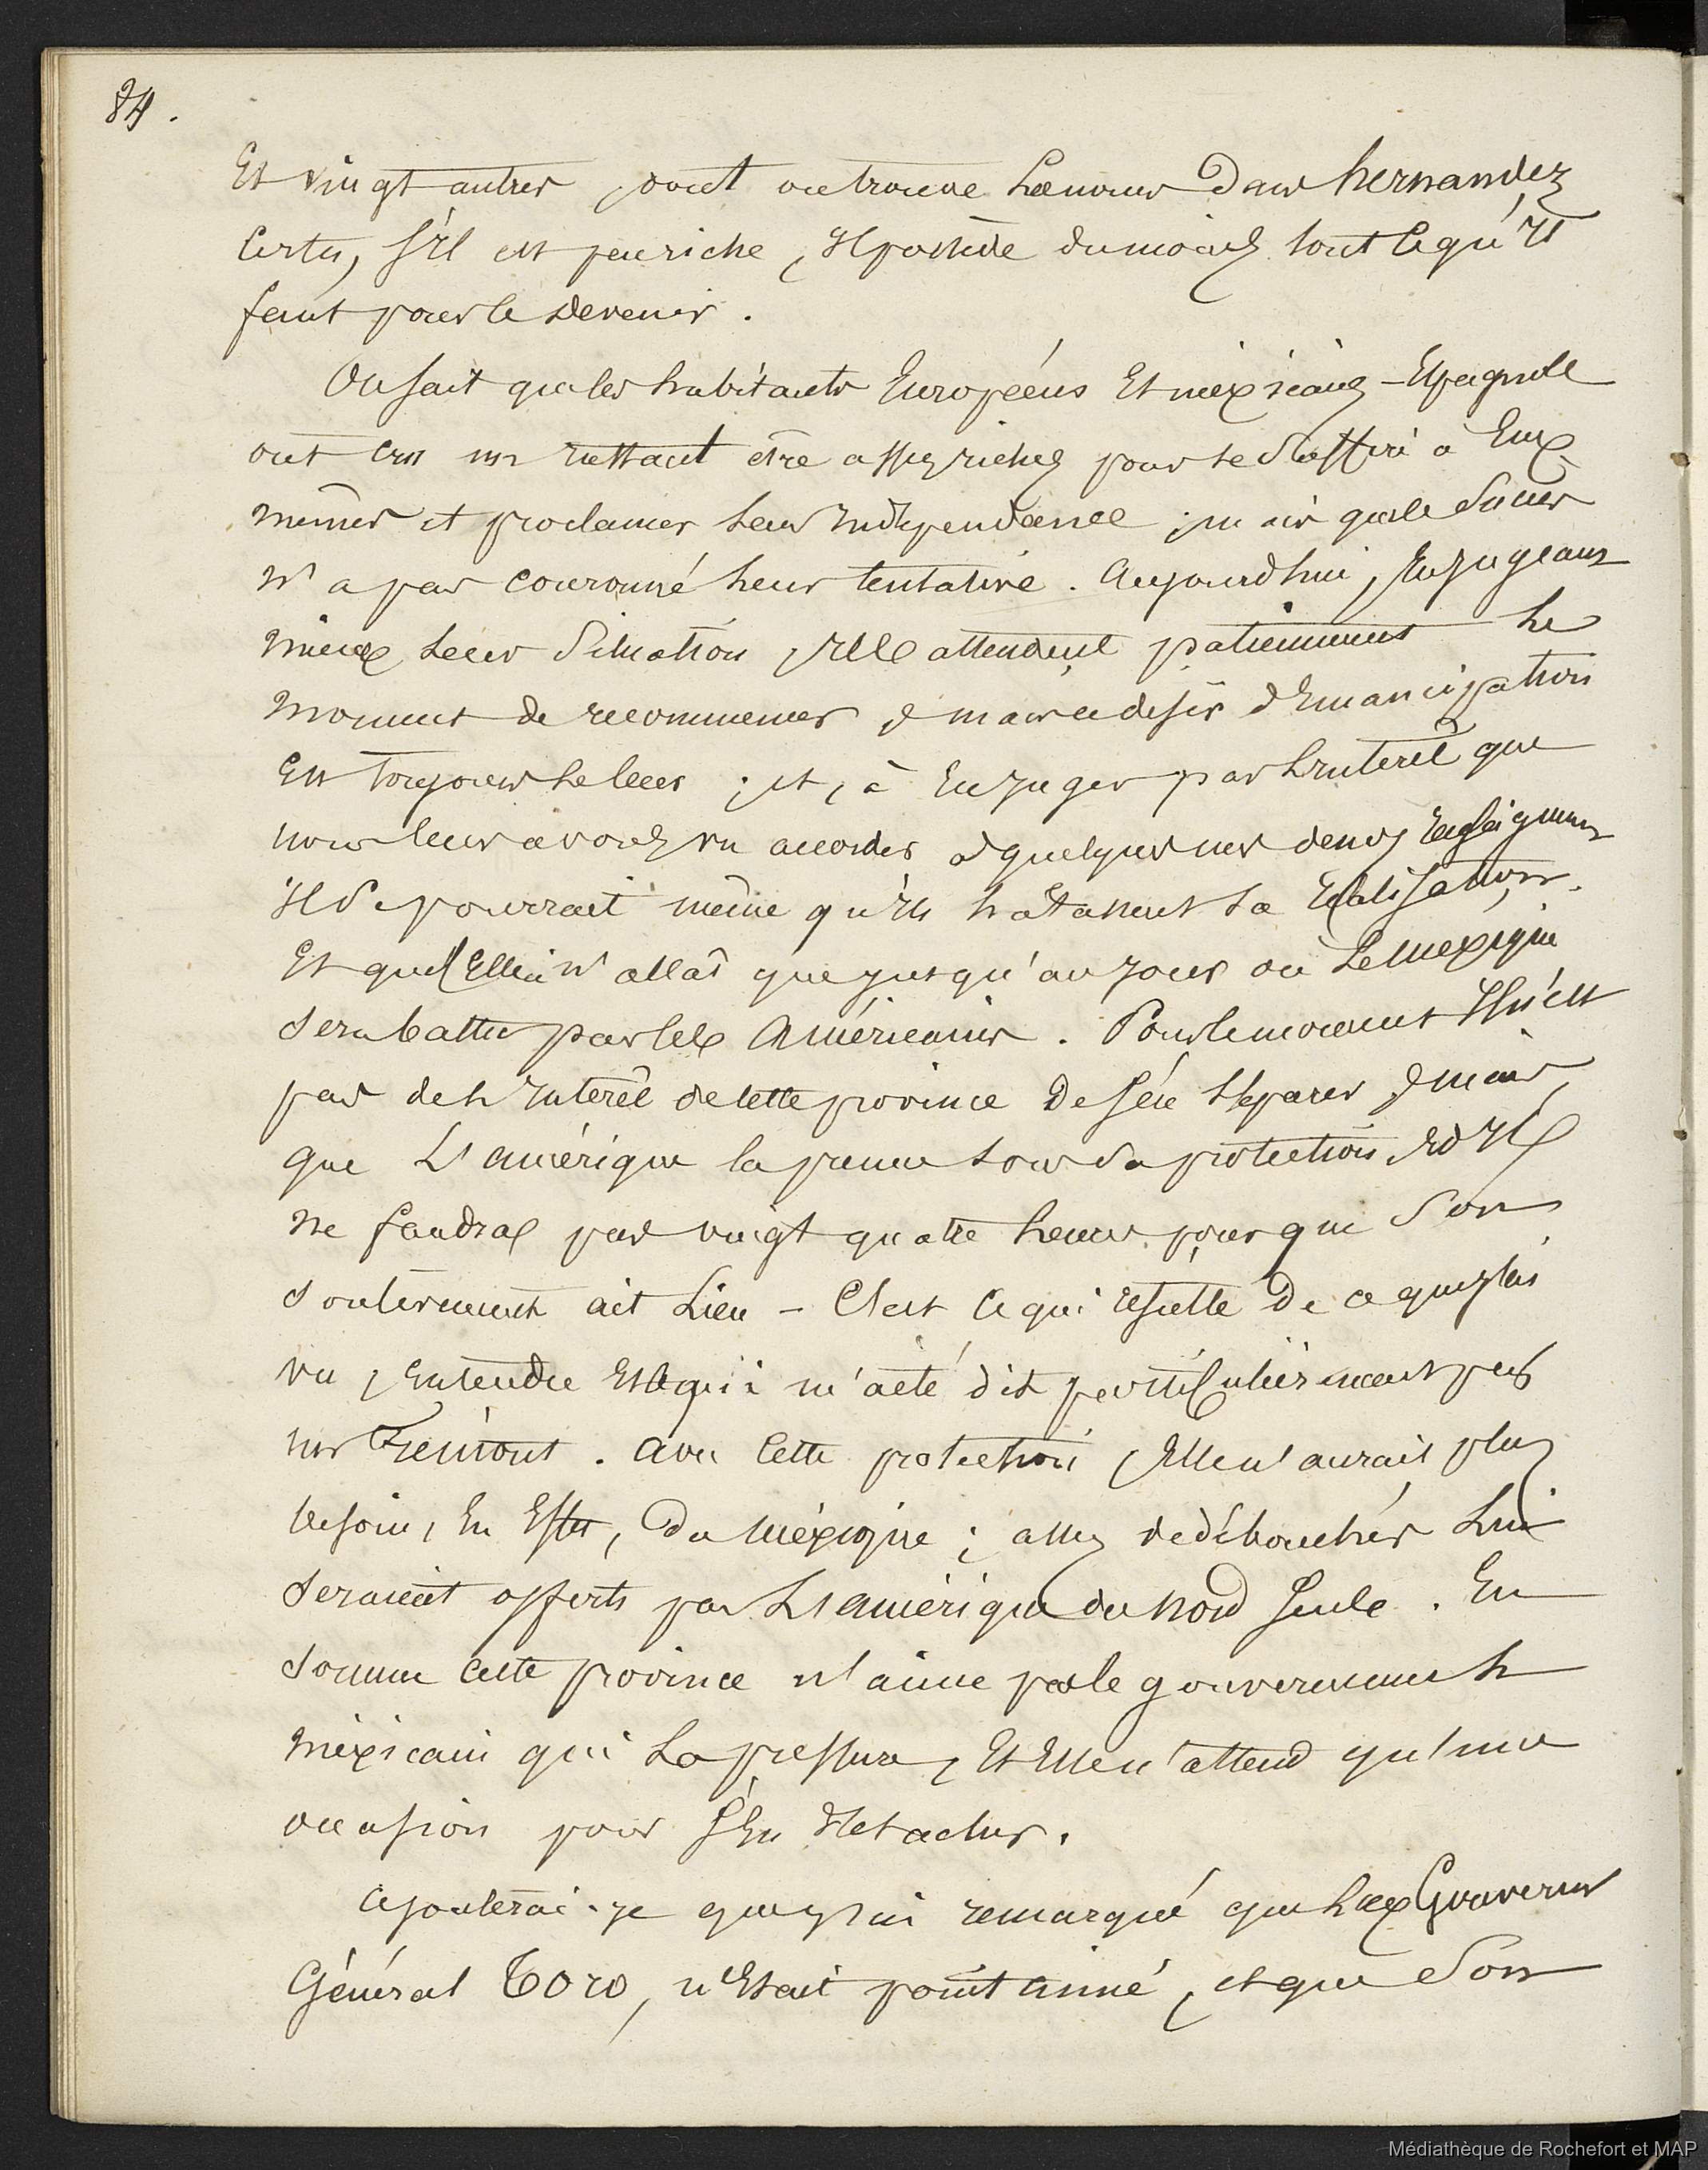 84.
Et vingt autres, dont on trouve les noms dans hernandez
Certes, s'il est peu riche, Il possède du moins tout ce qu'Il
faut pour le devenir.
On sait que les habitants Européens Et méxicains-Espagnols
ont cru un instant être assez riches pour se suffire à Eux
mêmes et proclamer leur Indépendance; mais que le Succès
n'a pas couronné leur tentative. Aujourd'hui, Enjugeant
mieux leur Situation, Ils attendent patiemment le
moment de recommencer, mais ce désir d'Emancipation
Est toujours le leur; et, à En juger par L'Interêt que
nous leur avons vu accorder à quelques uns de nos Enseignemens
Il Se pourrait même qu'Ils hâtassent sa Réalisation,
Et qu'Elle n'allat que jusqu'au jour où Le Mexique
Sera battu par les Américains. Pour le moment Il n'est
pas de L'Interêt de cette province De s'en séparer, mais,
que L'amérique la prenne sous Sa protection, Et Il
ne faudra pas vingt quatre heures pour que Son
Soulèvement ait Lieu - C'est ce qui résulte De ce que j'ai
vu, Entendu Et ce qui m'a été dit particulièrement par
mr Frémont. Avec Cette protection, Elle n'aurait plus
besoin, En Effet, Du Méxique; assez de débouchés Lui
Seraient offerts par L'amérique du Nord Seule. En
Somme Cette province n'aime pas le gouvernement
Méxicain qui La pressure, Et Elle n'attend qu'une
occasion pour S'En détacher.
Ajouterai-je que j'ai remarqué que L'ex Gouverneur
Général Toro, n'Etait point aimé, et que Son
Médiathèque de Rochefort et MAP